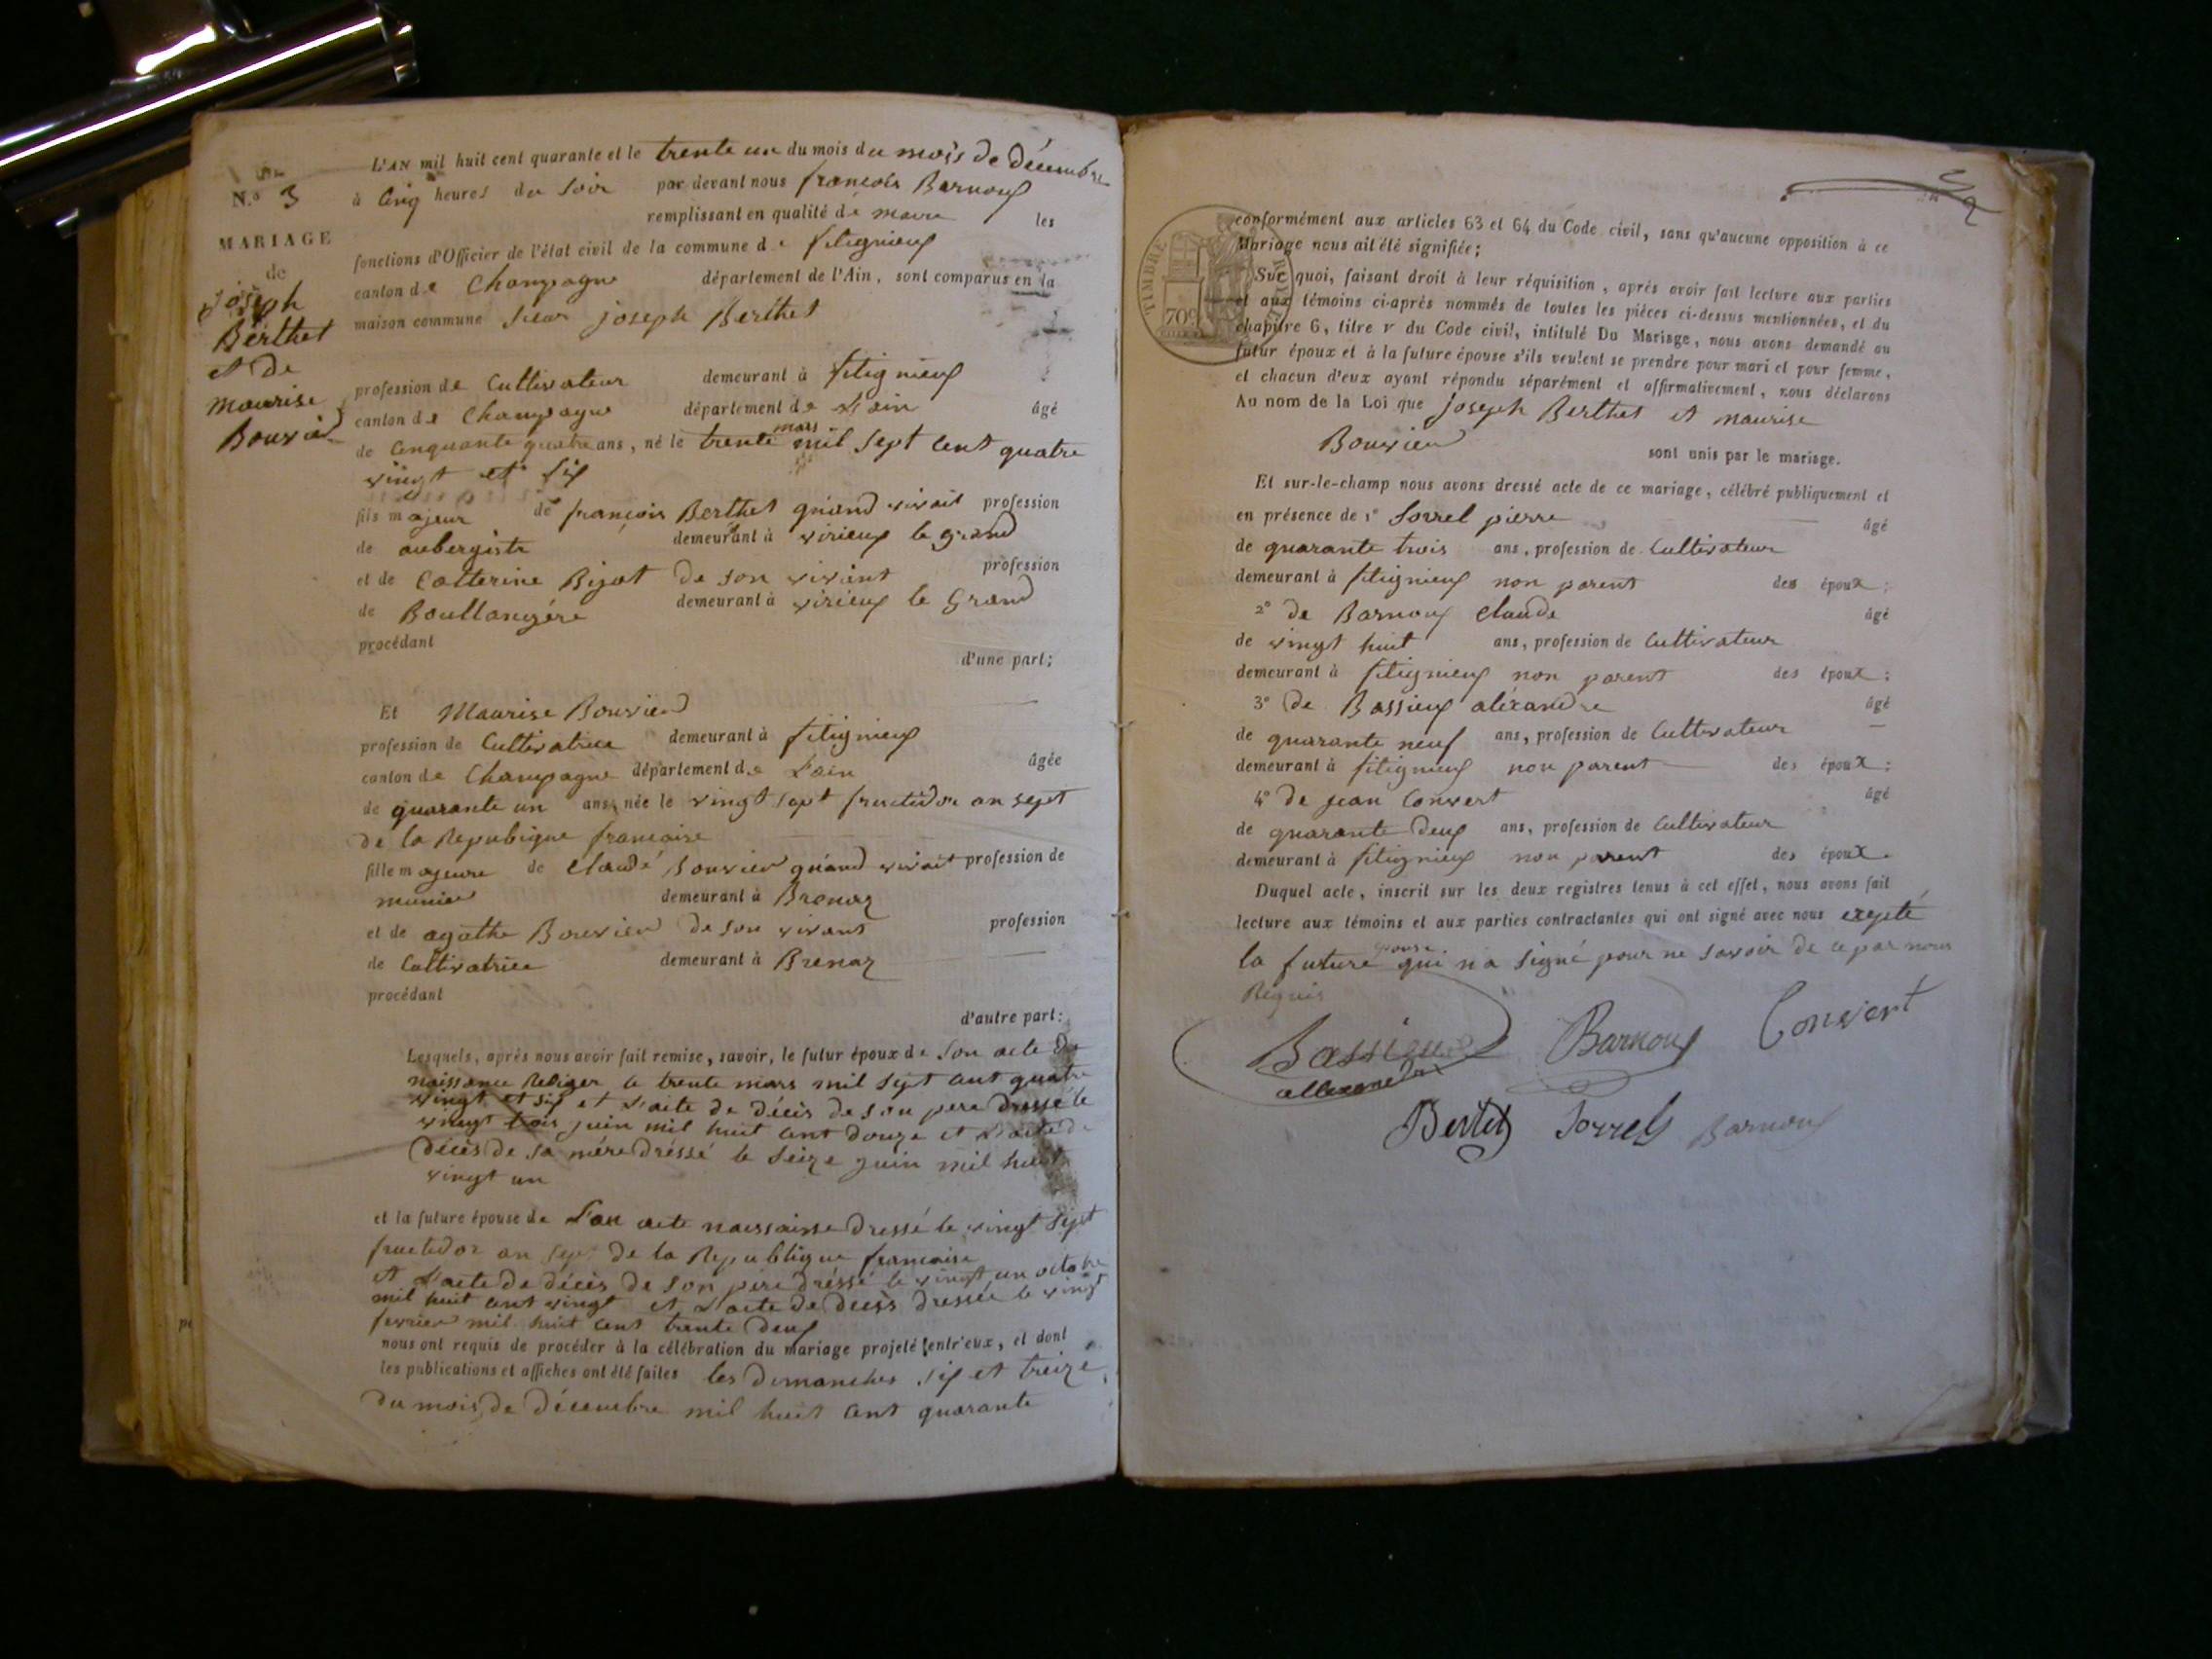 N.º 3
MARIAGE
de
Joseph
Berthet
et de
Maurise
Bouvier
L'AN mil huit cent quarante et le trente un du mois du mois de décembre
à Cinq heures du Soir par devant nous françois Barnoux
remplissant en qualité de maire les
fonctions d'Officier de l'état civil de la commune de fitignieux
canton de Champagne département de l'Ain, sont comparus en la
maison commune Sieur joseph Berthet
profession de Cultivateur demeurant à fitignieux
canton de Champagne département de l'ain âgé
de Cinquante quatre ans, né le trente mars mil sept cent quatre
vingt et six
fils majeur de françois Berthet quand vivait profession
de aubergiste demeurant à virieux le grand
et de Catterine Bizot de son vivant profession
de Boullangére demeurant à virieux le Grand
procédant
d'une part;
Et Maurise Bouvier
profession de Cultivatrice demeurant à fitignieux
canton de Champagne département de L'ain âgée
de quarante un ans, née le vingt sept fructidor an sept
de la Republique francaise
fille majeure de Claude Bouvier quand vivait profession de
munier demeurant à Brenaz
et de agathe Bouvier de son vivant profession
de Cultivatrice demeurant à Brenaz
procédant
d'autre part:
Lesquels, après nous avoir fait remise, savoir, le futur époux de Son acte de
naissance Rediger le trente mars mil sept cent quatre
vingt et six et L'acte de décès de son pere dressé le
vingt trois juin mil huit cent douze et L'acte de
décès de sa mére dréssé le Seize juin mil huit
vingt un
et la future épouse de Son acte naissainse dressé le vingt sept
fructidor an sept de la Republique francaise
et L'acte de décès de son pére dréssé le vingt un octobre
mil huit cent vingt et L'acte de décès dressée le vingt
fevrier mil huit cent trente deux
nous ont requis de procéder à la célébration du mariage projeté entr'eux, et dont
les publications et affiches ont été faites les dimanches six et treize
du mois de décembre mil huit cent quarante
conformément aux articles 63 et 64 du Code civil, sans qu'aucune opposition à ce
Mariage nous ait été signifiée;
TIMBRE ROYAL
70c
Sur quoi, faisant droit à leur réquisition, après avoir fait lecture aux parties
et aux témoins ci-après nommés de toutes les pièces ci-dessus mentionnées, et du
chapitre 6, titre v du Code civil, intitulé Du Mariage, nous avons demandé au
futur époux et à la future épouse s'ils veulent se prendre pour mari et pour femme,
et chacun d'eux ayant répondu séparément et affirmativement, nous déclarons
Au nom de la Loi que joseph Berthet et maurise
Bouvier
sont unis par le mariage.
Et sur-le-champ nous avons dressé acte de ce mariage, célébré publiquement et
en présence de 1º Sorrel pierre âgé
de quarante trois ans, profession de Cultivateur
demeurant à fitignieux non parent des époux;
2º de Barnoux Claude âgé
de vingt huit ans, profession de Cultivateur
demeurant à fitignieux non parent des époux;
3º de Bassieux aléxandre âgé
de quarante neuf ans, profession de Cultivateur
demeurant à fitignieux non parent des époux;
4º de jean Convert âgé
de quarante deux ans, profession de Cultivateur
demeurant à fitignieux non parent des époux.
Duquel acte, inscrit sur les deux registres tenus à cet effet, nous avons fait
lecture aux témoins et aux parties contractantes qui ont signé avec nous exepté
la future epouse qui n'a Signé pour ne savoir de ce par nous
Requis
Bassieux Barnoux Convert
allexandre
Bertet Sorrel Barnoux